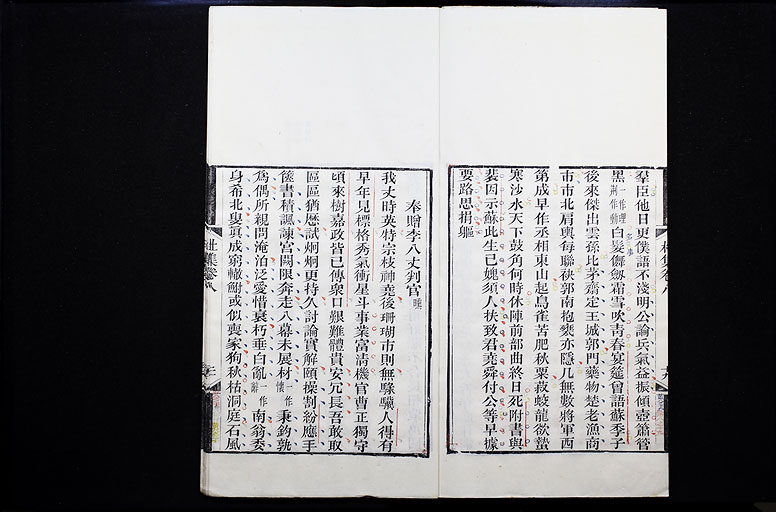 羣臣他日更僕語不淺明公論兵氣益振傾壺簫管
黑一作理荆作動白髮儛劍霜雪吹青春宴筵曾語蘇季子
後來傑出雲孫比茅齋定王城郭門藥物楚老漁商
市市北肩輿每聯袂郭南抱甕亦隱几無數將軍西
第成早作丞相東山起鳥雀苦肥秋粟菽蛟龍欲蟄
寒沙水天下鼓角何時休陣前部曲終日死附書與
裴因示蘇此生已媿須人扶致君堯舜付公等早據
要路思捐軀
奉贈李八丈判官曛
我丈時英特宗枝神堯後珊瑚市則無騄驥人得有
早年見標格秀氣衝星斗事業富清機官曹正獨守
頃來樹嘉政皆已傳衆口艱難體貴安冗長吾敢取
區區猶歷試炯炯更持久討論實解頤操割紛應手
篋書積諷諫宮闕限奔走入幕未展材一作懷秉鈞孰
爲偶所親問淹泊泛愛惜衰朽垂白亂一作辭南翁委
身希北叟眞成窮轍鮒或似喪家狗秋枯洞庭石風
杜集卷八